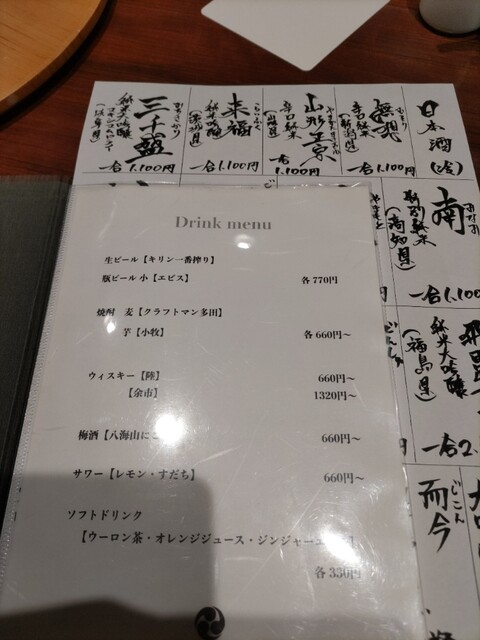 日本酒(冷)
無想
辛口純米
(新潟県)
一合1,100円
山形正宗
辛口純米
1,100円
来福
らいふく
純米
一合1,100円
三千盛
純米大吟醸
(岐阜県)
一合1,100円
南
特別純米
(高知県)
一合1,100
純米大吟醸
(福島県)
一合2,
而今
じこん
Drink menu
生ビール【キリン一番搾り】
瓶ビール 小【エビス】 各770円
焼酎 麦【クラフトマン多田】
芋【小牧】 各 660円~
ウィスキー【陸】 660円~
【余市】 1320円~
梅酒【八海山にご 660円~
サワー【レモン・すだち】 660円~
ソフトドリンク
【ウーロン茶・オレンジジュース・ジンジャーエ
各330円